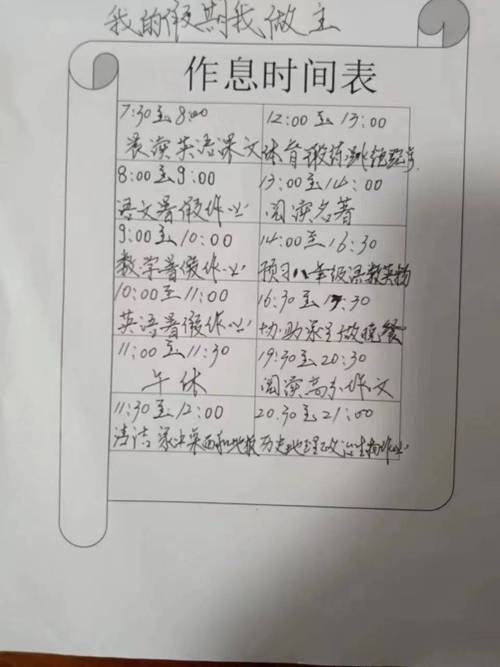 我的假期我做主
作息时间表
7:30至8:00
晨读英语课文
8:00至9:00
语文暑假作业
9:00至10:00
数学暑假作业
10:00至11:00
英语暑假作业
11:00至11:30
午休
11:30至12:00
清洁家中桌面和地板
12:00至13:00
体育锻炼跳绳
13:00至14:00
阅读名著
14:00至16:30
预习八年级语数英物
16:30至17:30
协助家长做晚餐
19:30至20:30
阅读高分作文
20:30至21:00
历史地理政治生物作业